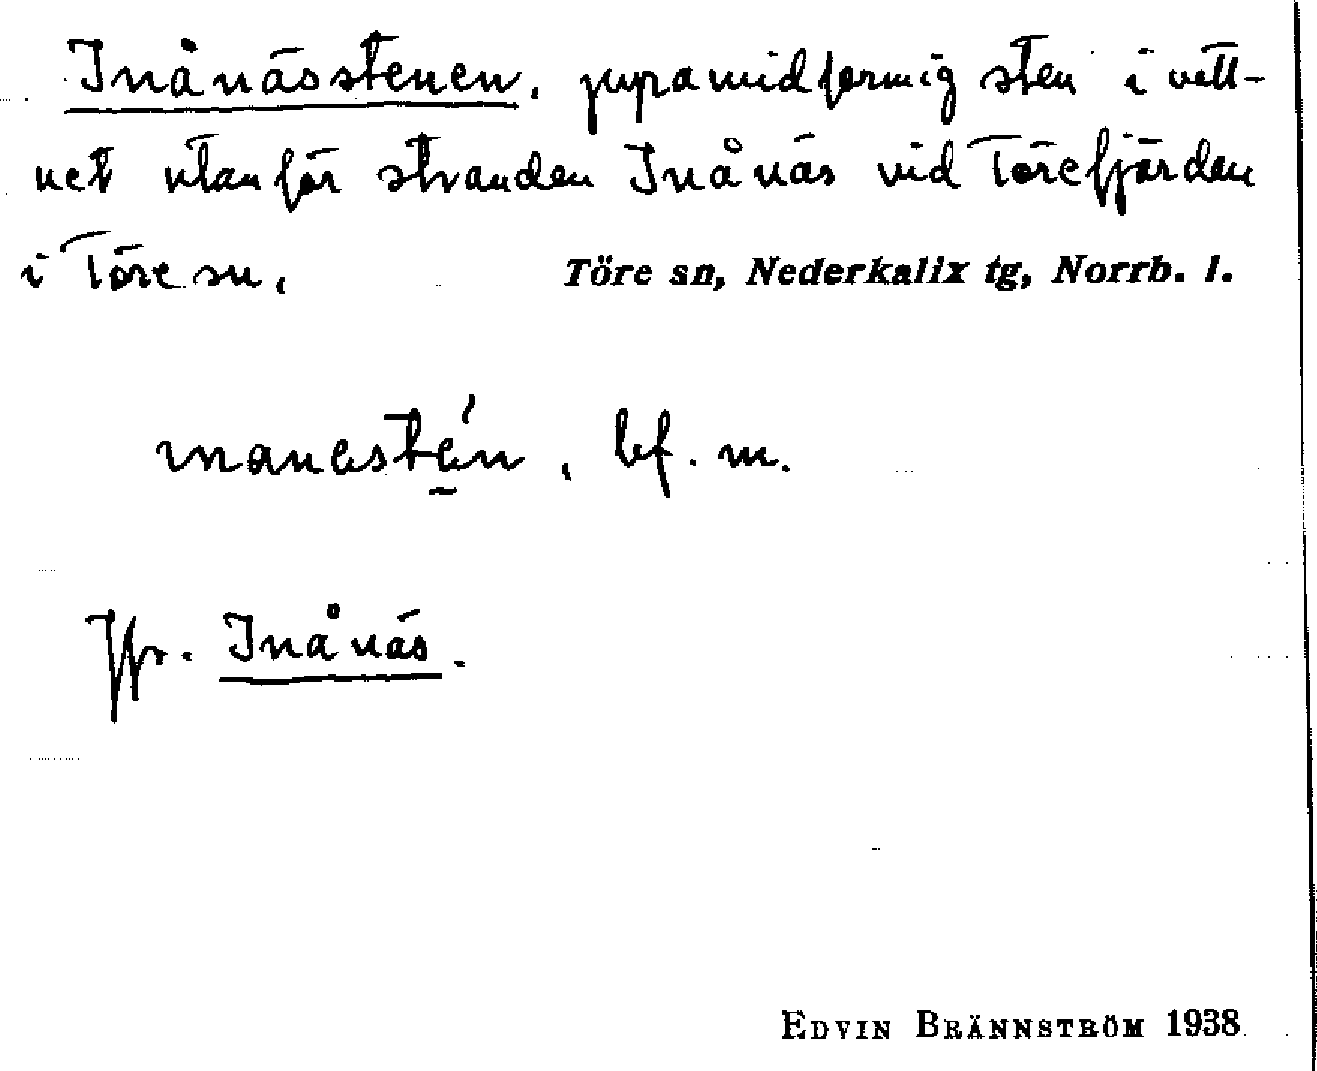 Inånässtenen, pyramidformig sten i vatt-
net utanför stranden Inånäs vid Törefjärden
i Töre sn,
Töre sn, Nederkalix tg, Norrb. l.
bf. m.
Jfr. Inånäs.
EDVIN BRÄNNSTRÖM 1938